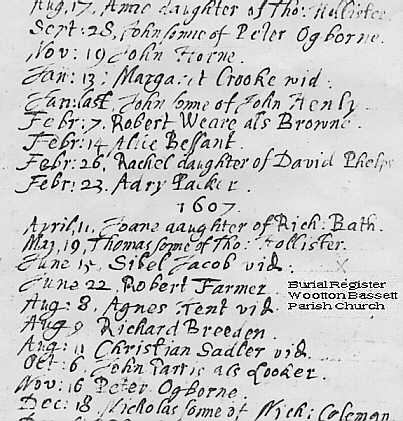 Aug. 17. Anne daughter of Tho: Hollister.
Sept: 28. John sonne of Peter Ogborne.
Nov: 19 John Horne.
Jan: 13: Margaret Crooke wid.
Jan: last. John sonne of John Henly.
Febr: 7. Robert Weare als Browne.
Febr: 14. Alice Bessant.
Febr: 26. Rachel daughter of David Phelps
Febr: 23. Adry Packer.
1607.
April. 11. Joane daughter of Rich: Bath.
May. 19. Thomas sonne of Tho: Hollister.
June 15. Sibel Jacob vid.
June 22. Robert Farmer.
Aug: 8. Agnes Tent vid.
Aug 9 Richard Breeden.
Aug: 11 Christian Sadler vid.
Oct: 6. John Parris als Looker.
Nov: 16 Peter Ogborne.
Dec: 18. Nicholas sonne of Nich: Coleman.
Burial Register
Wootton Bassett
Parish Church